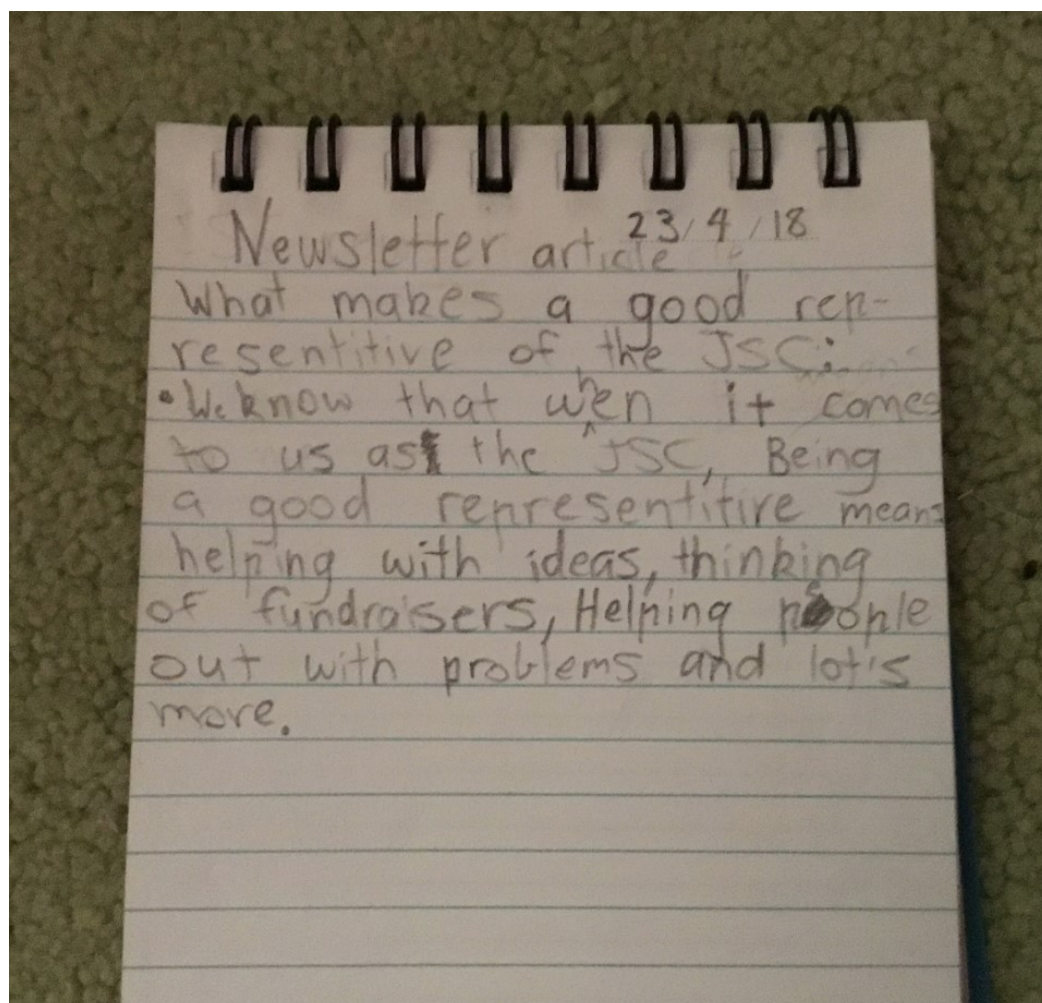 Newsletter article 23/4/18
What makes a good rep-
resentitive of the JSC:
• We know that when it comes
to us as the JSC, Being
a good representitive means
helping with ideas, thinking
of fundraisers, Helping people
out with problems and lot's
more.